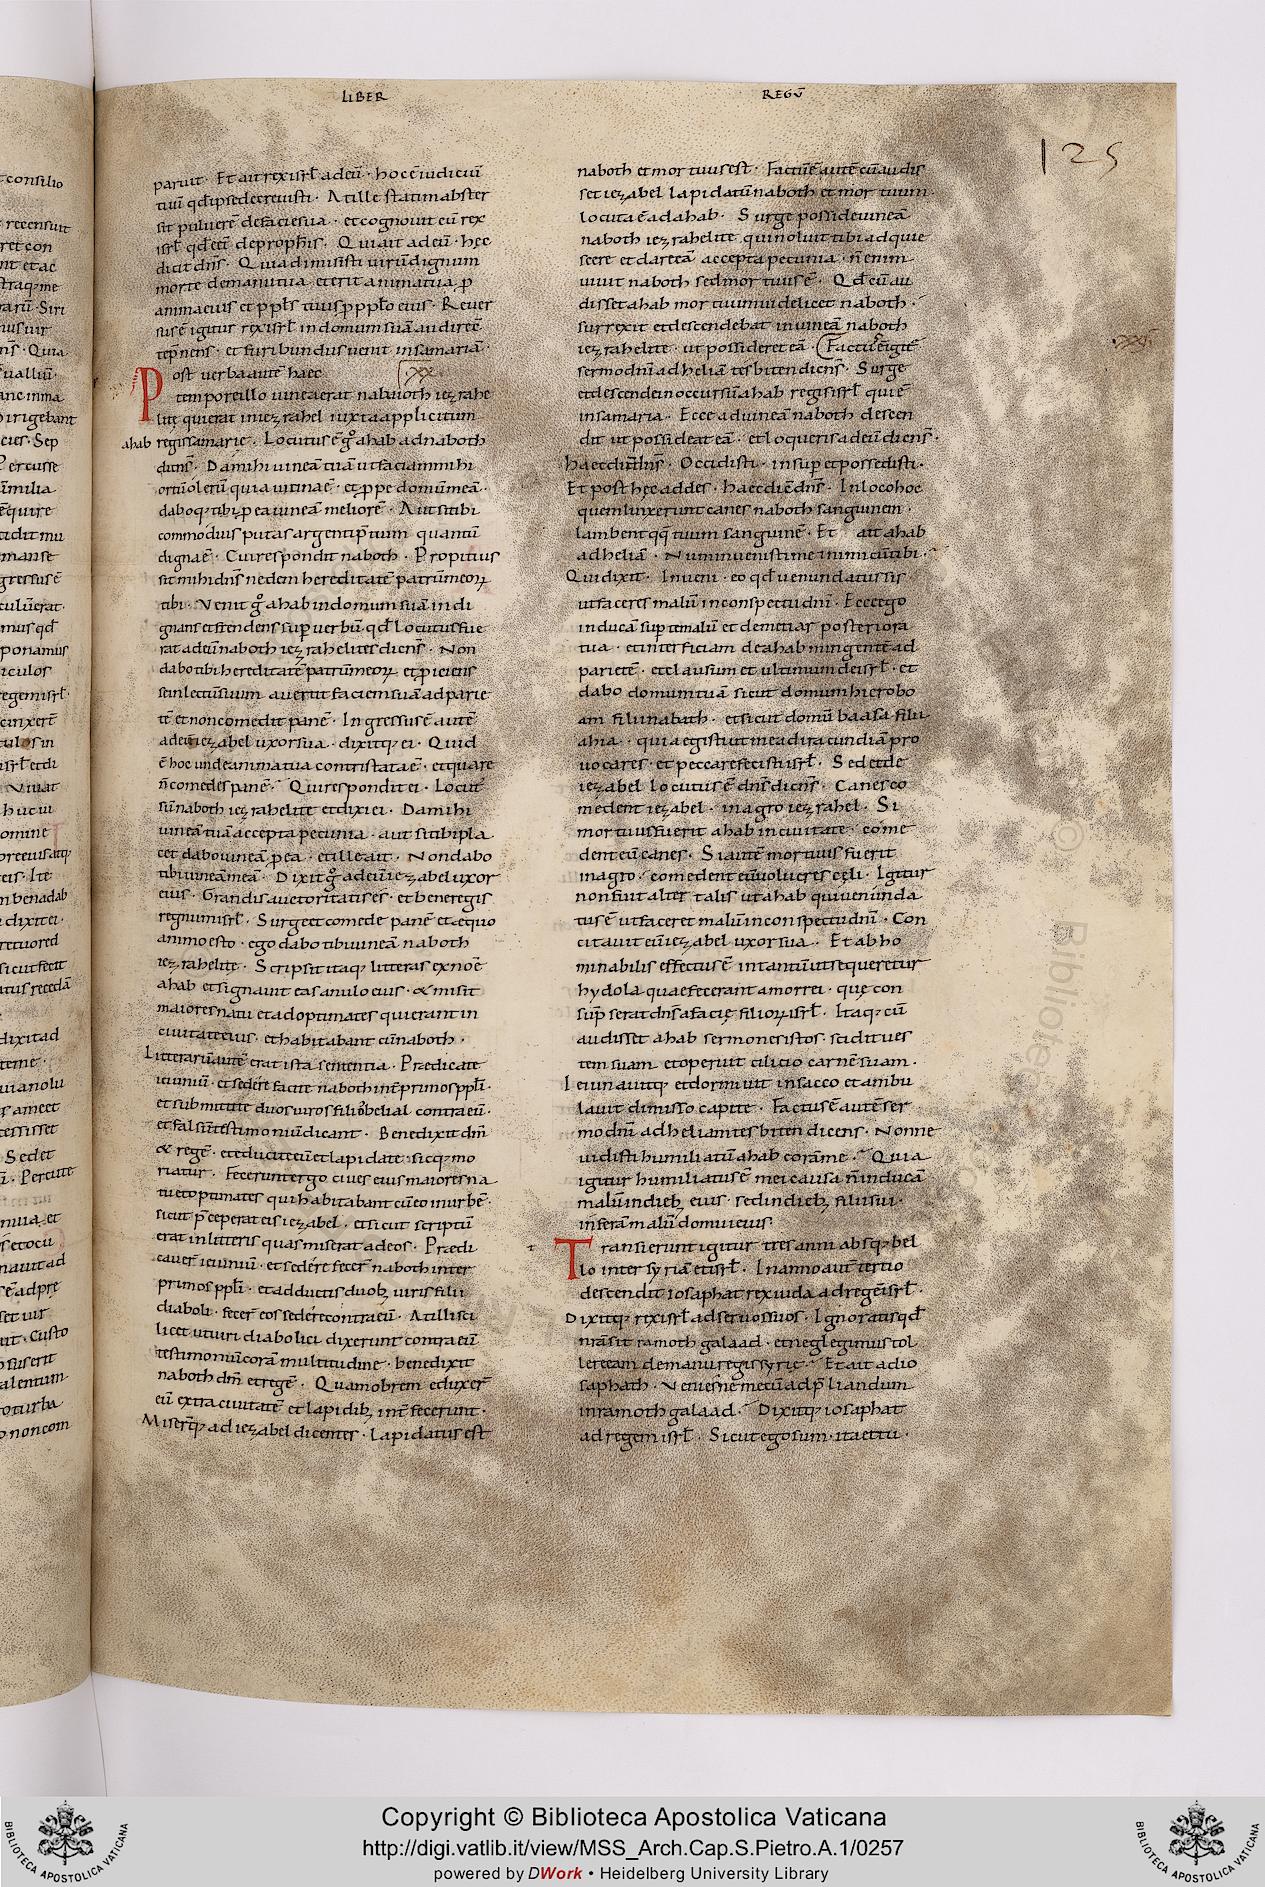 LIBER
REGŪ
125
paruit · Et ait rex isrł ad eū · hoc ē iudiciū
tuū qđ ipse decreuisti · At ille statim abster
sit puluerē de facie sua · et cognouit eū rex
isrł qđ eēt de prophīs · Qui ait ad eū · hęc
dicit dn̄s · Quia dimisisti uirū dignum
morte de manu tua · et erit anima tua ꝓ
anima eius et ppłs tuus ꝓ ppło eius · Reuer
sus ē igitur rex isrł in domum suā audire
tēpnens · et furibundus uenit in samariā ·
Post uerba autē haec · XX
tempore illo uinea erat naboth iezrahe
litę qui erat in iezrahel iuxta applicitum
ahab regis samarię · Locutus ē gͦ ahab ad naboth
dicens · Da mihi uineā tuā ut faciam mihi
ortū olerū quia uicina ē · et ꝓpe domū meā ·
daboq; tibi ꝓ ea uineā meliorē · Aut si tibi
commodius putas argenti p̄tium quantū
digna ē · Cui respondit naboth · Propitius
sit mihi dn̄s ne dem hereditatē patrū meoꝝ
tibi · Venit gͦ ahab in domum suā indi
gnans et frendens sup uerbū qđ locutus fue
rat ad eū naboth iezrahelites dicens · Non
dabo tibi hereditatē patrū meoꝝ et ꝓiciens
se in lectū suum auertit faciem suā ad parie
tē et non comedit panē · Ingressus ē autē
ad eū iezabel uxor sua · dixitq; ei · Quid
ē hoc unde anima tua contristata ē · et quare
n̄ comedes panē · Qui respondit ei · Locut'
sū naboth iezrahelite et dixi ei · Da mihi
uineā tuā accepta pecunia · aut si tibi pla
cet dabo uineā ꝓ ea · et ille ait · Non dabo
tibi uineā meā · Dixit gͦ ad eū iezabel uxor
eius · Grandis auctoritatis es · et bene regis
regnum isrł · Surge et comede panē et aequo
animo esto · ego dabo tibi uineā naboth
iezrahelitę · Scripsit itaq; litteras ex noīe
ahab et signauit eas anulo eius · & misit
maiores natu et ad optimates qui erant in
ciuitate eius · et habitabant cū naboth ·
Litterarū autē erat ista sententia · Praedicate
ieiuniū · et sedere facite naboth int̄ primos ppłi ·
et submittite duos uiros filios belial contra eū ·
et falsū testimoniū dicant · Benedixit dm̄
& regē · et educite eū et lapidate · sicq; mo
riatur · Fecerunt ergo ciues eius maiores na
tu et optimates qui habitabant cū eo in urbe ·
sicut p̄ceperat eis iezabel · et sicut scriptū
erat in litteris quas miserat ad eos · Praedi
cauer̄ ieiuniū · et sedere fecer̄ naboth inter
primos ppłi · et adductis duob; uiris filii
diaboli · fecer̄ eos sedere contra eū · At illi sci
licet ut uiri diabolici dixerunt contra eū
testimoniū corā multitudine · benedixit
naboth dm̄ et regē · Quamobrem eduxer̄
eū extra ciuitatē et lapidib; int̄fecerunt ·
Miserq; ad iezabel dicentes · Lapidatus est
naboth et mortuus est · Factū ē autē cū audis
set iezabel lapidatū naboth et mortuum ·
locuta ē ad ahab · Surge posside uineā
naboth iezrahelite qui noluit tibi adquie
scere et dare eā accepta pecunia · n̄ enim
uiuit naboth sed mortuus ē · Qđ cū au
disset ahab mortuum uidelicet naboth ·
surrexit et descendebat in uineā naboth
iezrahelite · ut possideret eā · Factus ē igit̄
XXI
sermo dni ad heliā tesbiten dicens · Surge
et descende in occursū ahab regis isrł qui ē
in samaria · Ecce ad uineā naboth descen
dit ut possideat eā · et loqueris ad eū dicens ·
Haec dicit dn̄s · Occidisti · insup et possedisti ·
Et post hęc addes · haec dic̄ dn̄s · In loco hoc
quem linxerunt canes naboth sanguinem ·
lambent qq̄ tuum sanguinē · Et ait ahab
ad heliā · Num inuenisti me inimicū tibi ·
Qui dixit · Inueni · eo qđ uenundatus sis
ut faceres malū in conspectu dni · Ecce ego
inducā sup te malū et demetā posteriora
tua · et interficiam de ahab mingente ad
parietē · et clausum et ultimum de isrł · et
dabo domum tuā sicut domum hierobo
am filii nabath · et sicut domū baasa filii
ahia · quia egisti ut me ad iracundiā pro
uocares · et peccare fecisti isrł · Sed et de
iezabel locutus ē dn̄s dicens · Canes co
medent iezabel · in agro iezrahel · Si
mortuus fuerit ahab in ciuitate · come
dent eū canes · Si autē mortuus fuerit
in agro · comedent eū uolucres cęli · Igitur
non fuit alter talis ut ahab qui uenunda
tus ē ut faceret malū in conspectu dni · Con
citauit eū iezabel uxor sua · Et abho
minabilis effectus ē in tantū ut sequeretur
hydola quae fecerant amorrei · quę con
sūpserat dn̄s a facie filioꝝ isrł · Itaq; cū
audisset ahab sermones istos · scidit ues
tem suam et operuit cilicio carnē suam ·
Ieiunauitq; et dormiuit in sacco et ambu
lauit dimisso capite · Factus ē autē ser
mo dni ad heliam tesbiten dicens · Nonne
uidisti humiliatū ahab corā me · Quia
igitur humiliatus ē mei causa n̄ inducā
malū in dieb; eius · sed in dieb; filii sui ·
inferā malū domui eius ·
Transierunt igitur tres anni absq; bel
lo inter syriā et isrł · In anno aut̄ tertio
descendit iosaphat rex iuda ad regē isrł ·
Dixitq; rex isrł ad seruos suos · Ignoratis qđ
nr̄a sit ramoth galaad · et neglegimus tol
lere eam de manu regis syrię · Et ait ad io
saphath · Veniesne mecū ad p̄liandum
in ramoth galaad · Dixitq; iosaphat
ad regem isrł · Sicut ego sum · ita et tu ·
Copyright © Biblioteca Apostolica Vaticana
http://digi.vatlib.it/view/MSS_Arch.Cap.S.Pietro.A.1/0257
powered by DWork • Heidelberg University Library
BIBLIOTECA APOSTOLICA VATICANA
BIBLIOTECA APOSTOLICA VATICANA